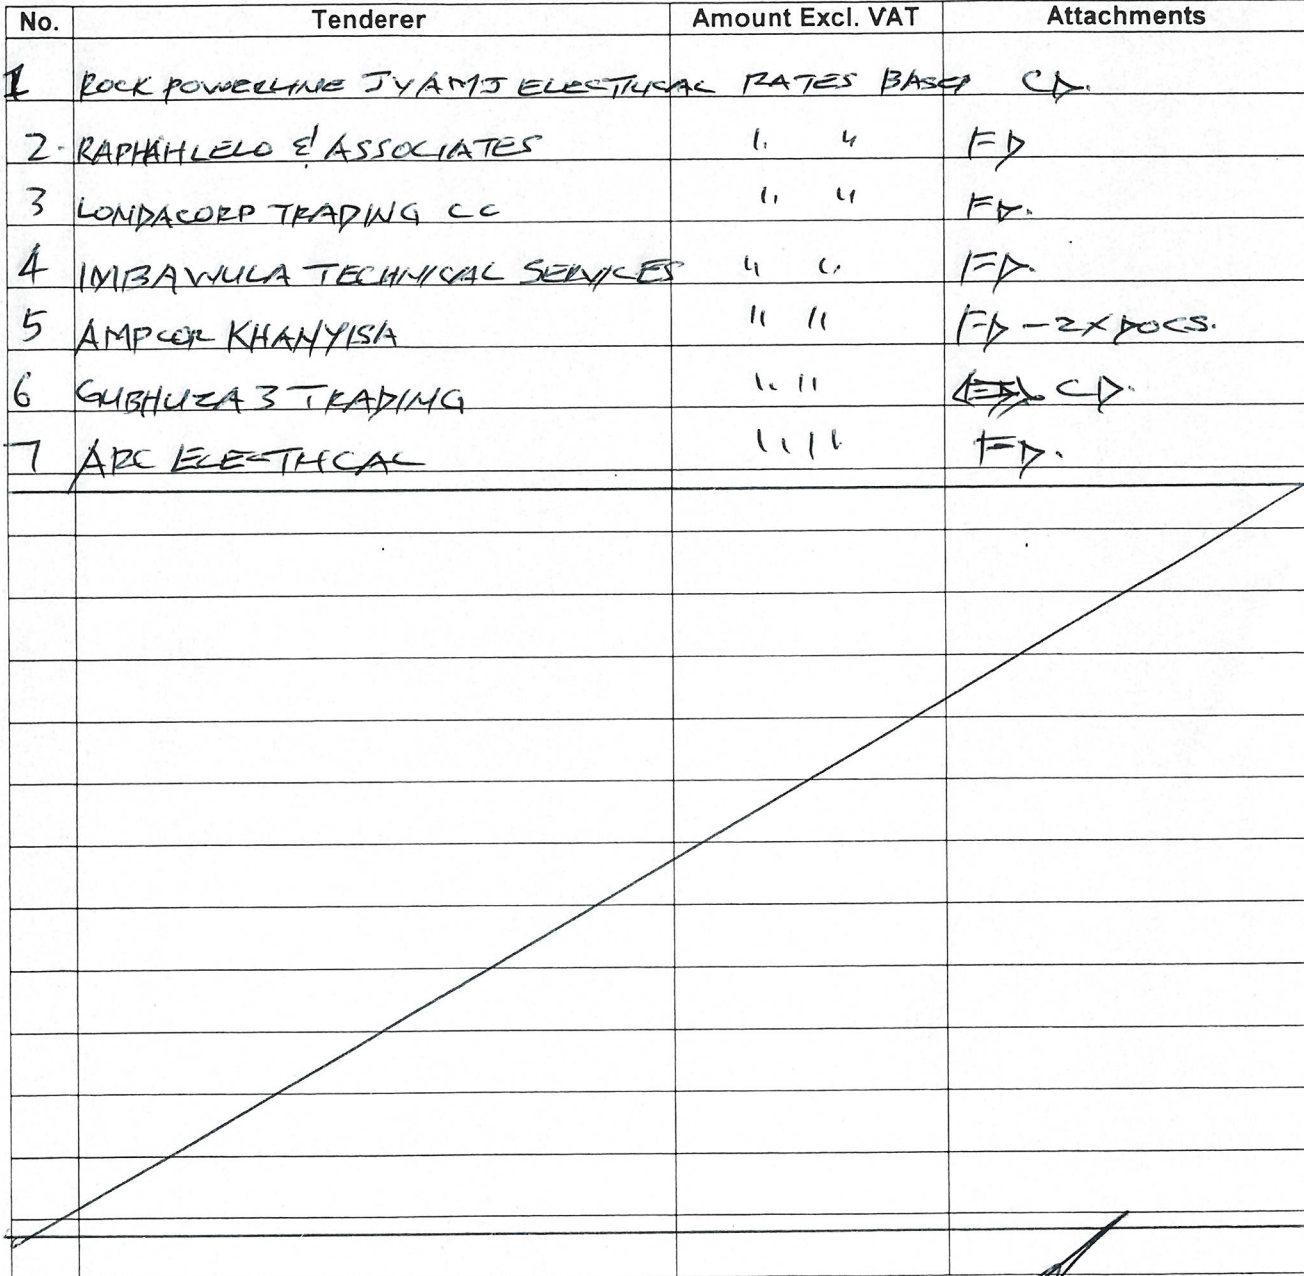 No. Tenderer Amount Excl. VAT Attachments
1 ROCK POWERLINE JV AMJ ELECTRICAL RATES BASED CD.
2. RAPHAHLELO & ASSOCIATES " " FD
3 LONDACORP TRADING CC " " FD.
4 IMBAWULA TECHNICAL SERVICES " " FD.
5 AMPCOR KHANYISA " " FD - 2X DOCS.
6 GUBHUZA 3 TRADING " " CD.
7 ARC ELECTRICAL " " FD.